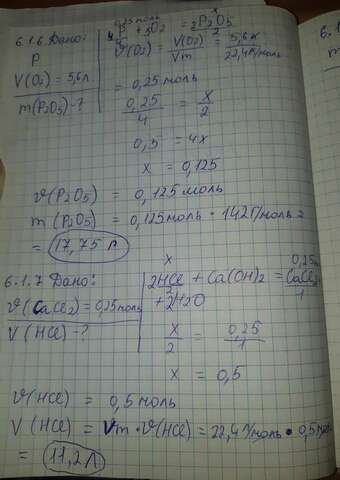 6.1.6 Дано:
P
V(O₂) = 5,6 л
m(P₂O₅) - ?
0,25 моль x
4P + 5O₂ = 2P₂O₅
2
ν(O₂) = V(O₂)/Vm = 5,6 л / 22,4 л/моль
= 0,25 моль
0,25/4 = x/2
0,5 = 4x
x = 0,125
ν(P₂O₅) = 0,125 моль
m (P₂O₅) = 0,125 моль · 142 г/моль =
= 17,75 г
6.1.7 Дано:
ν(CaCl₂) = 0,25 моль
V (HCl) - ?
x 0,25
2HCl + Ca(OH)₂ = CaCl₂
2 1
+ 2H₂O
x/2 = 0,25/1
x = 0,5
ν(HCl) = 0,5 моль
V (HCl) = Vm · ν(HCl) = 22,4 л/моль · 0,5 моль
= 11,2 л
6.1